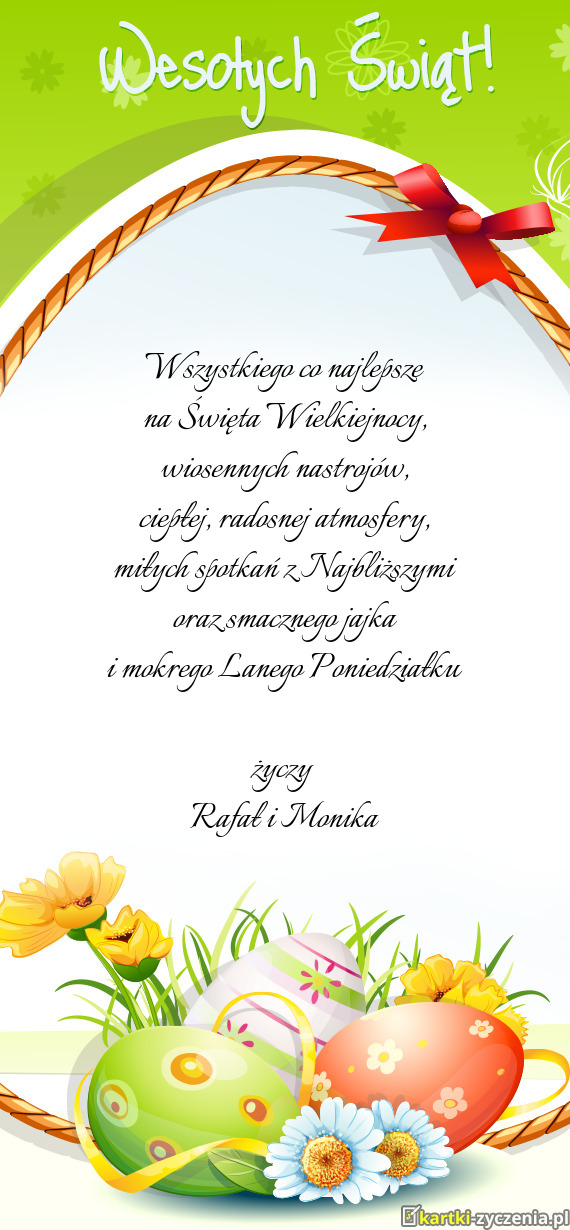 Wesołych Świąt!
Wszystkiego co najlepsze
na Święta Wielkiejnocy,
wiosennych nastrojów,
ciepłej, radosnej atmosfery,
miłych spotkań z Najbliższymi
oraz smacznego jajka
i mokrego Lanego Poniedziałku
życzy
Rafał i Monika
kartki-zyczenia.pl